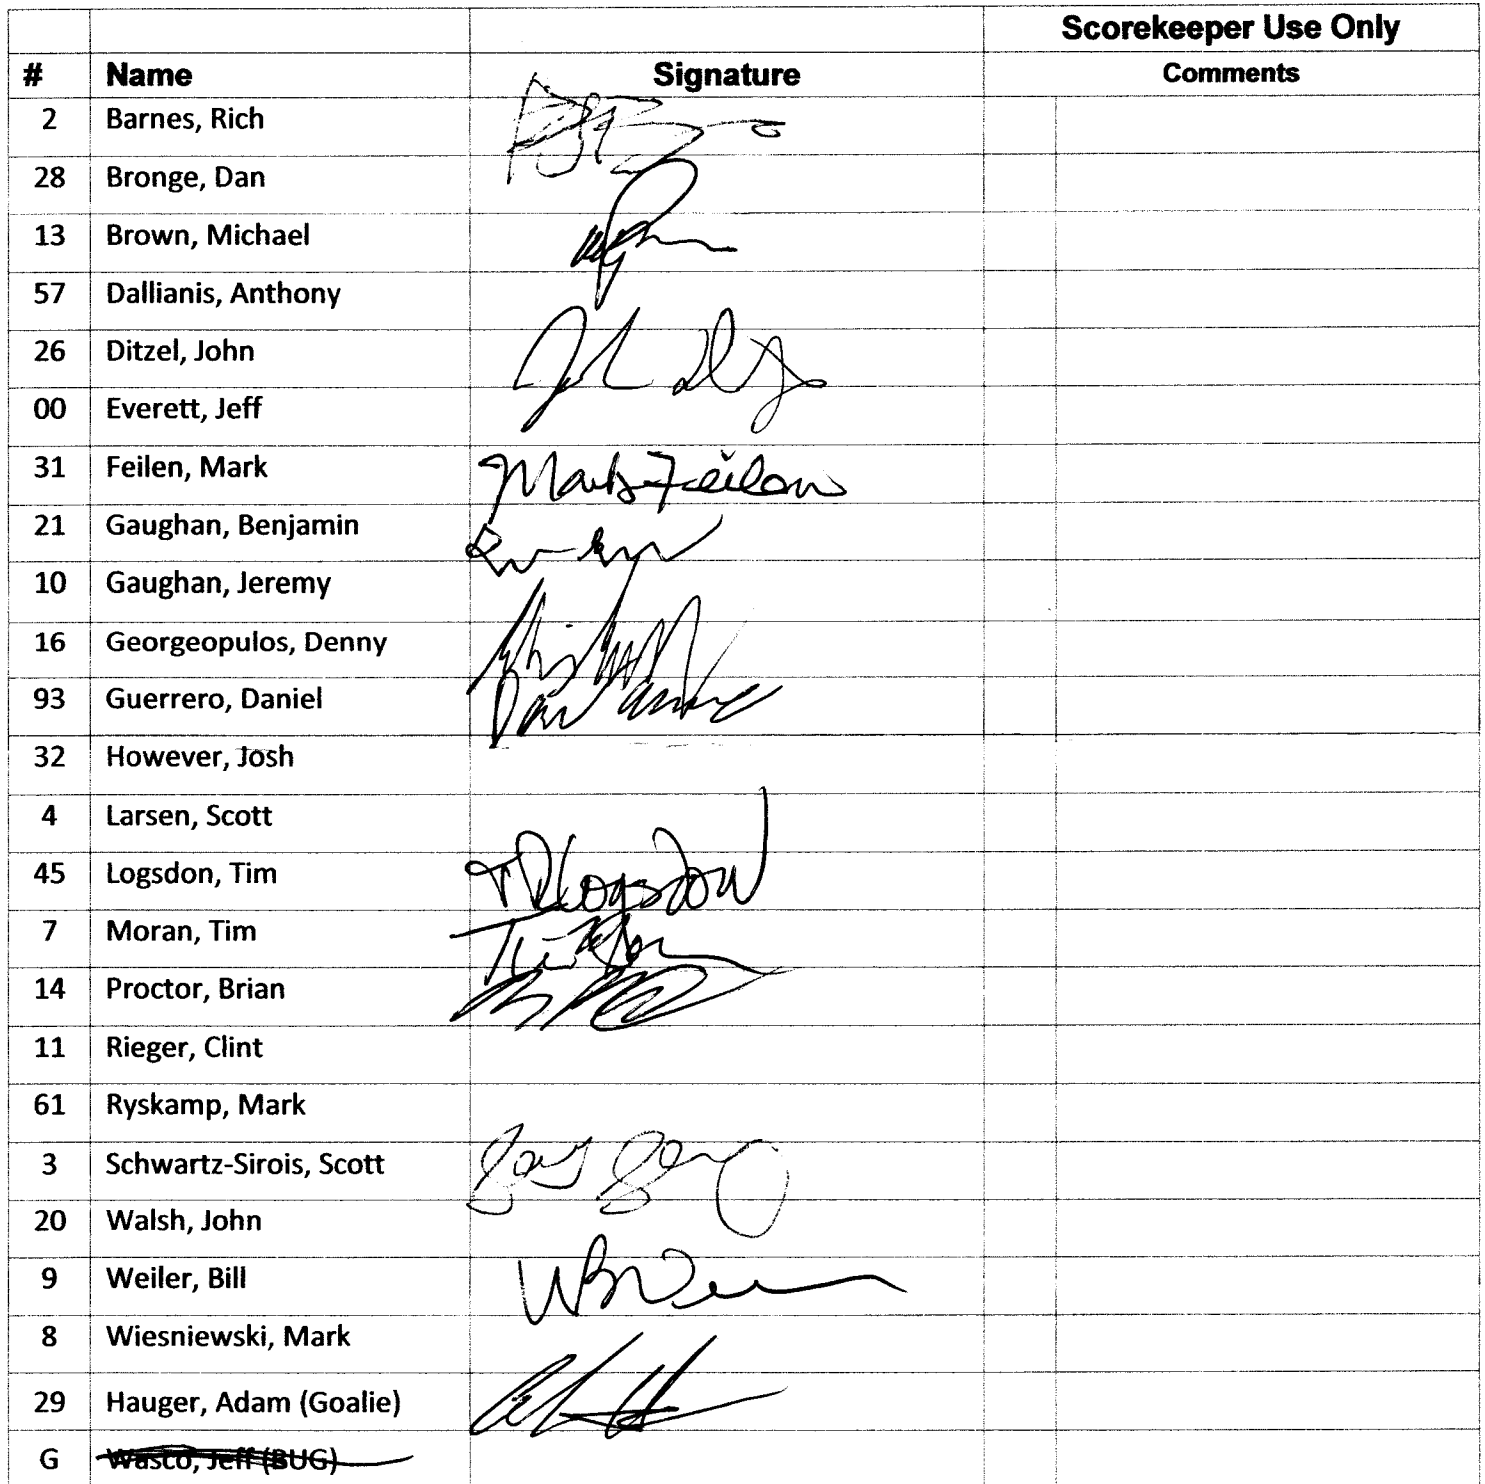 Scorekeeper Use Only
# Name Signature Comments
2 Barnes, Rich
28 Bronge, Dan
13 Brown, Michael
57 Dallianis, Anthony
26 Ditzel, John
00 Everett, Jeff
31 Feilen, Mark Mark Feilen
21 Gaughan, Benjamin
10 Gaughan, Jeremy
16 Georgeopulos, Denny
93 Guerrero, Daniel
32 However, Josh
4 Larsen, Scott
45 Logsdon, Tim TR Logsdon
7 Moran, Tim
14 Proctor, Brian
11 Rieger, Clint
61 Ryskamp, Mark
3 Schwartz-Sirois, Scott
20 Walsh, John
9 Weiler, Bill
8 Wiesniewski, Mark
29 Hauger, Adam (Goalie)
G Wasco, Jeff (BUG)